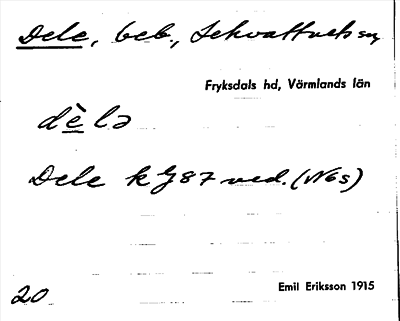 Dele, beb., Lekvattnets sn
Fryksdals hd, Värmlands län
dè lə
Dele k G 87 ved. (Nos)
20
Emil Eriksson 1915